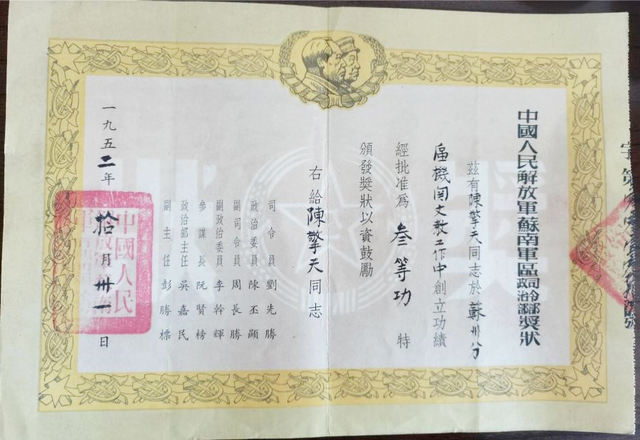 中國人民解放軍蘇南軍區司令部政治部獎狀
茲有陳擎天同志於蘇州分
區機關文教工作中創立功績
經批准為叁等功特
頒發獎狀以資鼓勵
右給陳擎天同志
司令員劉先勝
政治委員陳丕顯
副司令員周長勝
副政治委員李幹輝
參謀長阮賢榜
政治部主任吳嘉民
副主任彭勝標
一九五二年拾月卅一日
中國人民